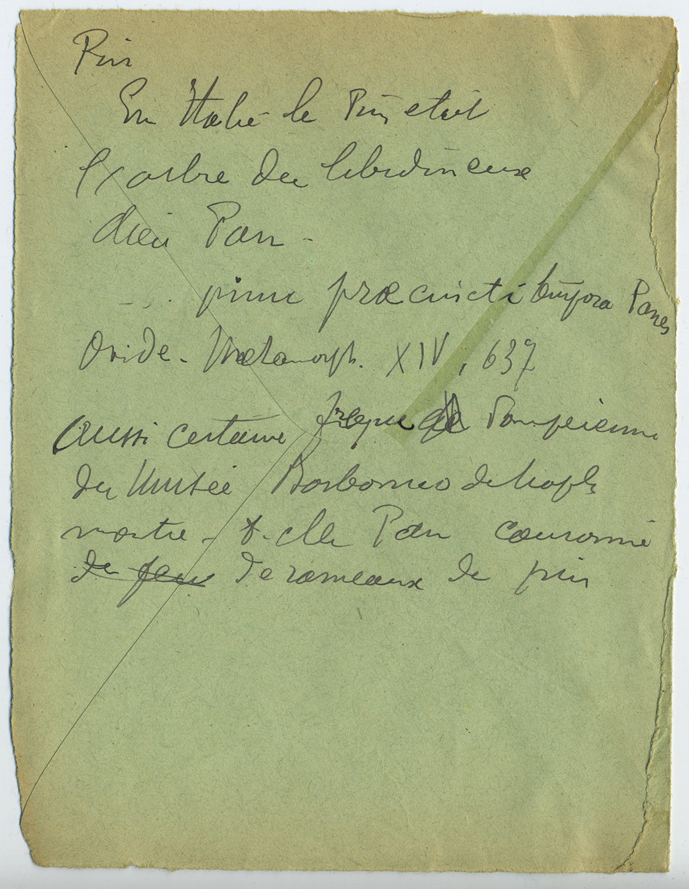 Pin
En Italie le Pin etait
l'arbre du libidineux
dieu Pan -
... pinu præcincti tempora Panes
Ovide - Metamorph. XIV, 637
Aussi certaine fresque de Pompeienne
du Musée Borbonico de Naples
montre - t - elle Pan couronné
de feui de rameaux de pin